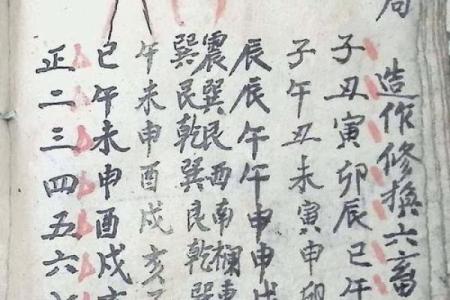 局
造作修換六畜
子丑寅卯辰巳午
子午丑未寅申卯
辰辰午午申申戌
震巽艮西南欄東
巽艮乾巽艮乾巽
午未申酉戌亥
巳午未申酉戌
正二三四五六